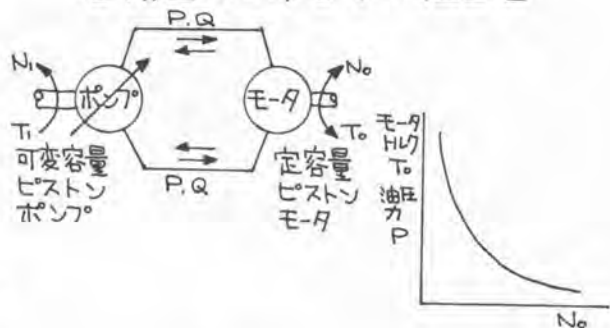 P.Q
N₁
ポンプ
モータ
N₀
T₁
T₀
可変容量
ピストン
ポンプ
P.Q
定容量
ピストン
モータ
モータ
トルク
T₀
油圧
力
P
N₀